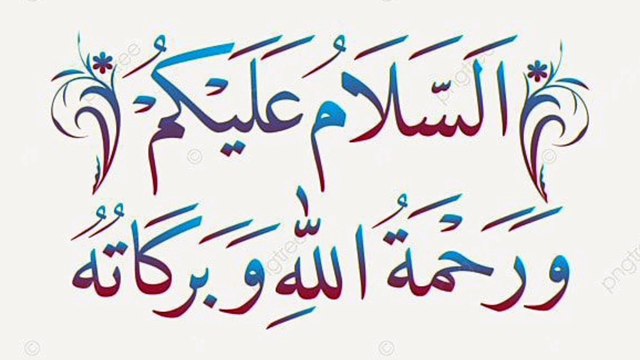 اَلسَّلَامُ عَلَيْكُمْ
وَرَحْمَةُ اللّٰهِ وَبَرَكَاتُهُ
pngtree